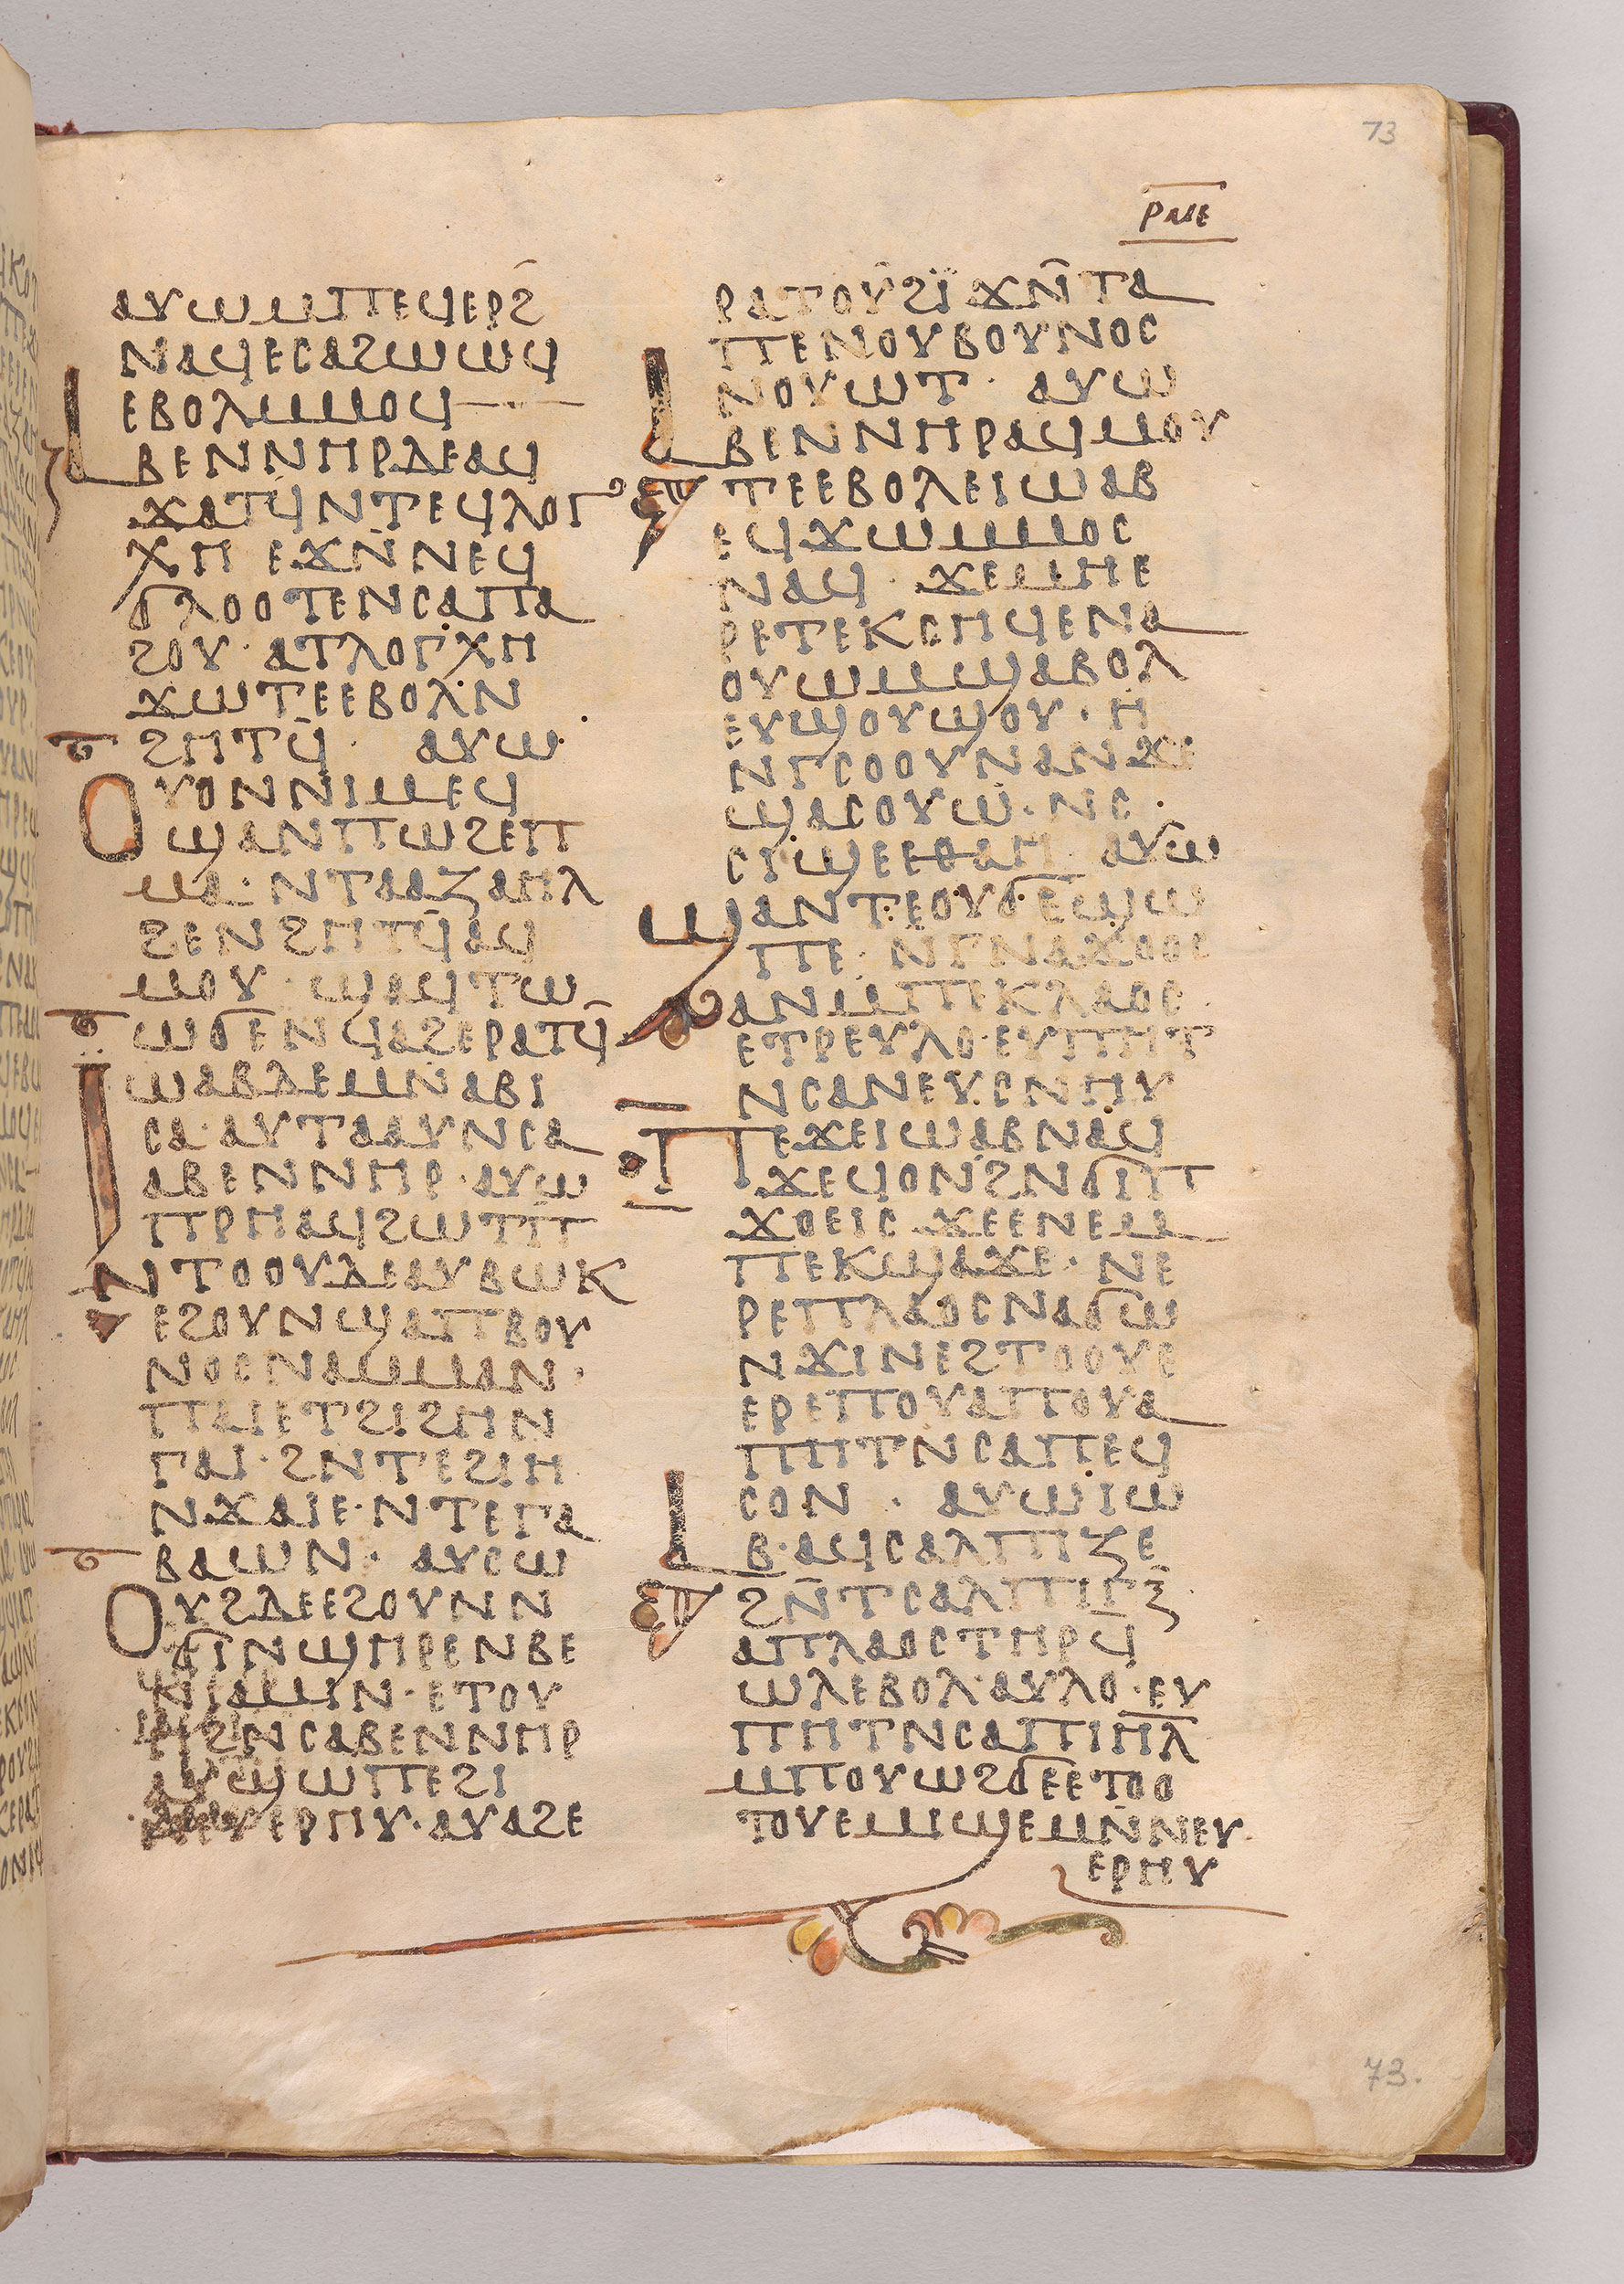 ⲣⲙⲉ
ⲁⲩⲱⲙⲡⲉϥⲉⲣϩ
ⲛⲁϥⲉⲥⲁϩⲱⲱϥ
ⲉⲃⲟⲗⲙⲙⲟϥ
ⲁⲃⲉⲛⲛⲏⲣⲇⲉⲁϥ
ϫⲁⲧϥⲛⲧⲉϥⲗⲟⲅ
ⲭⲏ ⲉϫⲛ̄ⲛⲉϥ
ϭⲗⲟⲟⲧⲉⲛⲥⲁⲡⲁ
ϩⲟⲩ· ⲁⲧⲗⲟⲅⲭⲏ
ϫⲱⲧⲉⲉⲃⲟⲗⲛ
ϩⲏⲧϥ̄· ⲁⲩⲱ
ⲟⲩⲟⲛⲛⲓⲙⲉϥ
ϣⲁⲛⲡⲱϩⲉⲡ
ⲙⲁ·ⲛⲧⲁⲁⲍⲁⲏⲗ
ϩⲉⲛϩⲏⲧϥ̄ⲁϥ
ⲙⲟⲩ·ϣⲁϥⲧⲱ
ⲱϭⲉⲛϥⲁϩⲉⲣⲁⲧϥ̄
ⲓ̈ⲱⲁⲃⲇⲉⲙⲛ̄ⲁⲃⲓ
ⲥⲁ·ⲁⲩⲧⲁⲁⲩⲛⲥⲁ
ⲁⲃⲉⲛⲛⲏⲣ·ⲁⲩⲱ
ⲡⲣⲏⲁϥϩⲱⲧⲡ̄
ⲛⲧⲟⲟⲩⲇⲉⲁⲩⲃⲱⲕ
ⲉϩⲟⲩⲛϣⲁⲡⲃⲟⲩ
ⲛⲟⲥⲛⲁⲙⲙⲁⲛ·
ⲡⲁⲓⲉⲧϩⲓϩⲏⲛ
ⲅⲁⲓ·ϩⲛⲧⲉϩⲓⲏ
ⲛϫⲁⲓⲉ·ⲛⲧⲉⲅⲁ
ⲃⲁⲱⲛ· ⲁⲩⲥⲱ
ⲟⲩϩⲇⲉⲉϩⲟⲩⲛⲛ
ϭⲓⲛϣⲏⲣⲉⲛⲃⲉ
ⲛⲓⲁⲙⲓⲛ·ⲉⲧⲟⲩ
ⲏϩⲛⲥⲁⲃⲉⲛⲛⲏⲣ
ⲁⲩϣⲱⲡⲉϩⲓ
ⲛⲉⲩⲉⲣⲏⲩ·ⲁⲩⲁϩⲉ
ⲣⲁⲧⲟⲩϩⲓ̈ϫⲛ̄ⲧⲁ
ⲡⲉⲛⲟⲩⲃⲟⲩⲛⲟⲥ
ⲛⲟⲩⲱⲧ· ⲁⲩⲱ
ⲁⲃⲉⲛⲛⲏⲣⲁϥⲙⲟⲩ
ⲧⲉⲉⲃⲟⲗⲉⲓⲱⲁⲃ
ⲉϥϫⲱⲙⲙⲟⲥ
ⲛⲁϥ·ϫⲉⲙⲏⲉ
ⲣⲉⲧⲉⲕⲥⲏϥⲉⲛⲁ
ⲟⲩⲱⲙϣⲁⲃⲟⲗ
ⲉⲩϣⲟⲩϣⲟⲩ·ⲏ
ⲛⲅⲥⲟⲟⲩⲛⲁⲛϫⲉ
ϣⲁⲥⲟⲩⲱ·ⲛⲥ
ⲥⲓϣⲉⲉⲑⲁⲏ ⲁⲩⲱ
ϣⲁⲛⲧⲉⲟⲩϭⲉϣⲱ
ⲡⲉ·ⲛⲅⲛⲁϫⲟⲟⲥ
ⲁⲛⲙⲡⲉⲕⲗⲁⲟⲥ
ⲉⲧⲣⲉⲩⲗⲟ·ⲉⲩⲡⲏⲧ
ⲛⲥⲁⲛⲉⲩⲥⲛⲏⲩ
ⲡⲉϫⲉⲓⲱⲁⲃⲛⲁϥ
ϫⲉϥⲟⲛϩⲛϭⲓⲡ
ϫⲟⲉⲓⲥ ϫⲉⲉⲛⲉⲙ
ⲡⲉⲕϣⲁϫⲉ·ⲛⲉ
ⲣⲉⲡⲗⲁⲟⲥⲛⲁϭⲱ
ⲛϫⲓⲛⲉϩⲧⲟⲟⲩⲉ
ⲉⲣⲉⲡⲟⲩⲁⲡⲟⲩⲁ
ⲡⲏⲧⲛⲥⲁⲡⲉϥ
ⲥⲟⲛ · ⲁⲩⲱⲓⲱ
ⲁⲃ·ⲁϥⲥⲁⲗⲡⲓⲍⲉ
ϩⲛ̄ⲧⲥⲁⲗⲡⲓⲅⲝ
ⲁⲡⲗⲁⲟⲥⲧⲏⲣϥ
ⲱⲗⲉⲃⲟⲗ·ⲁⲩⲗⲟ·ⲉⲩ
ⲡⲏⲧⲛⲥⲁⲡⲓⲏ̄ⲗ̄
ⲙⲡⲟⲩⲱϩϭⲉⲉⲧⲟⲟ
ⲧⲟⲩⲉⲙⲓϣⲉⲙⲛ̄ⲛⲉⲩ
ⲉⲣⲏⲩ
73
73.